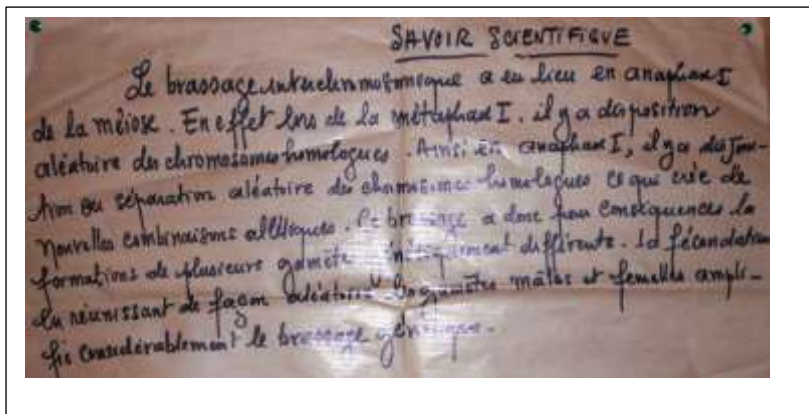 SAVOIR SCIENTIFIQUE
Le brassage interchromosomique a eu lieu en anaphase I
de la méiose. En effet lors de la métaphase I. il y a disposition
aléatoire des chromosomes homologues. Ainsi en anaphase I, il y a disjonc-
tion ou séparation aléatoire des chromosomes homologues ce qui crée de
nouvelles combinaisons alléliques. Ce brassage a donc pour conséquences la
formations de plusieurs gamète génétiquement différents. La fécondation
en réunissant de façon aléatoire les gamètes mâles et femelles ampli-
fie considérablement le brassage génétique.